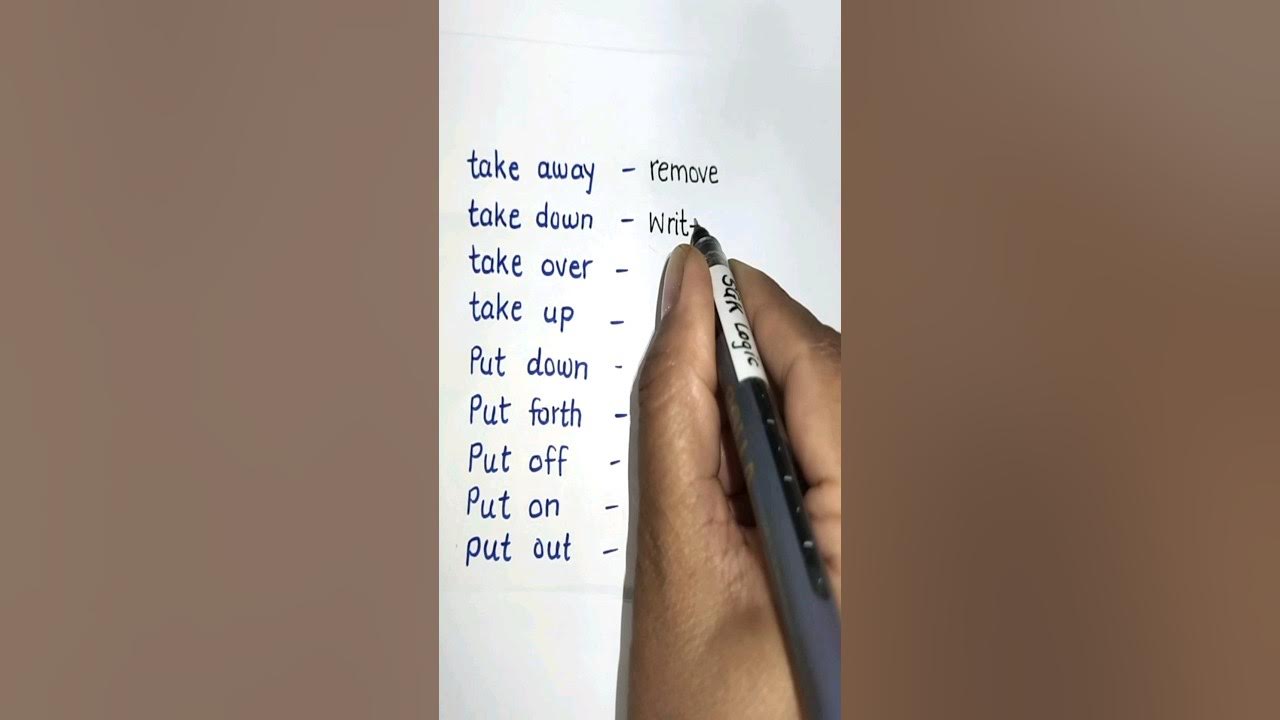 take away - remove
take down - Writ
take over -
take up -
Put down -
Put forth -
Put off -
Put on -
put out -
Logic